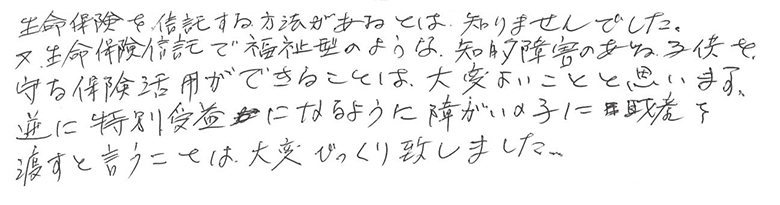 生命保険を信託する方法があるとは、知りませんでした。
又、生命保険信託で福祉型のような、知的障害のある、子供を、
守る保険活用ができることは、大変よいことと思います。
逆に特別受益になるように障がいの子に財産を
渡すと言うことは、大変びっくり致しました。